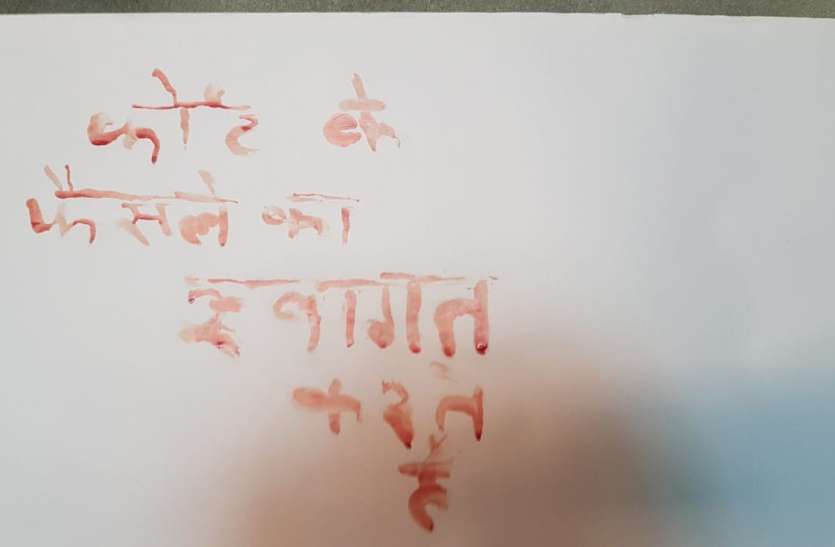 कोर्ट के
फैसले का
स्वागत
करते
हैं